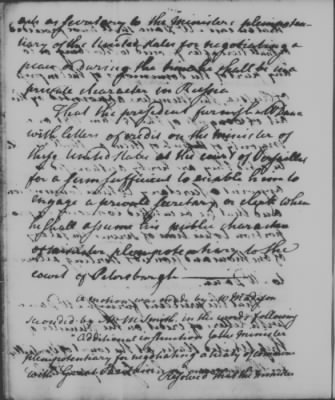 act as Secretary to the Ministers plenipoten-
tiary of the United States for negotiating a
peace & during the time he shall be in a
private character in Russia
That the president furnish Mr Dana
with letters of credit on the minister of
these United States at the court of Versailles
for a sum sufficient to enable him to
engage a private Secretary or clerk when
he shall assume his public character
of minister plenipotentiary to the
court of Petersburgh
A motion was made by Mr Madison
seconded by Mr M Smith, in the words following
Additional instruction to the minister
plenipotentiary for negotiating a treaty of commerce
with Great Britain
Resolved that the minister